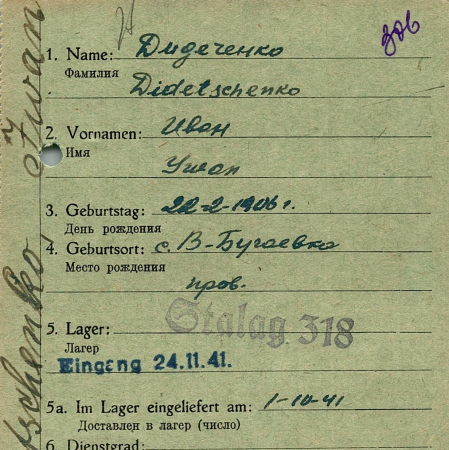 306
1. Name: Дидеченко
Фамилия
Didetschenko
2. Vornamen: Иван
Имя
Iwan
3. Geburtstag: 22-2-1906 г.
День рождения
4. Geburtsort: с. В-Бугаевка
Место рождения
пров.
5. Lager: Stalag 318
Лагер
Eingang 24.11.41.
5a. Im Lager eingeliefert am: 1-10-41
Доставлен в лагер (число)
6. Dienstgrad:
tschenko, Iwan